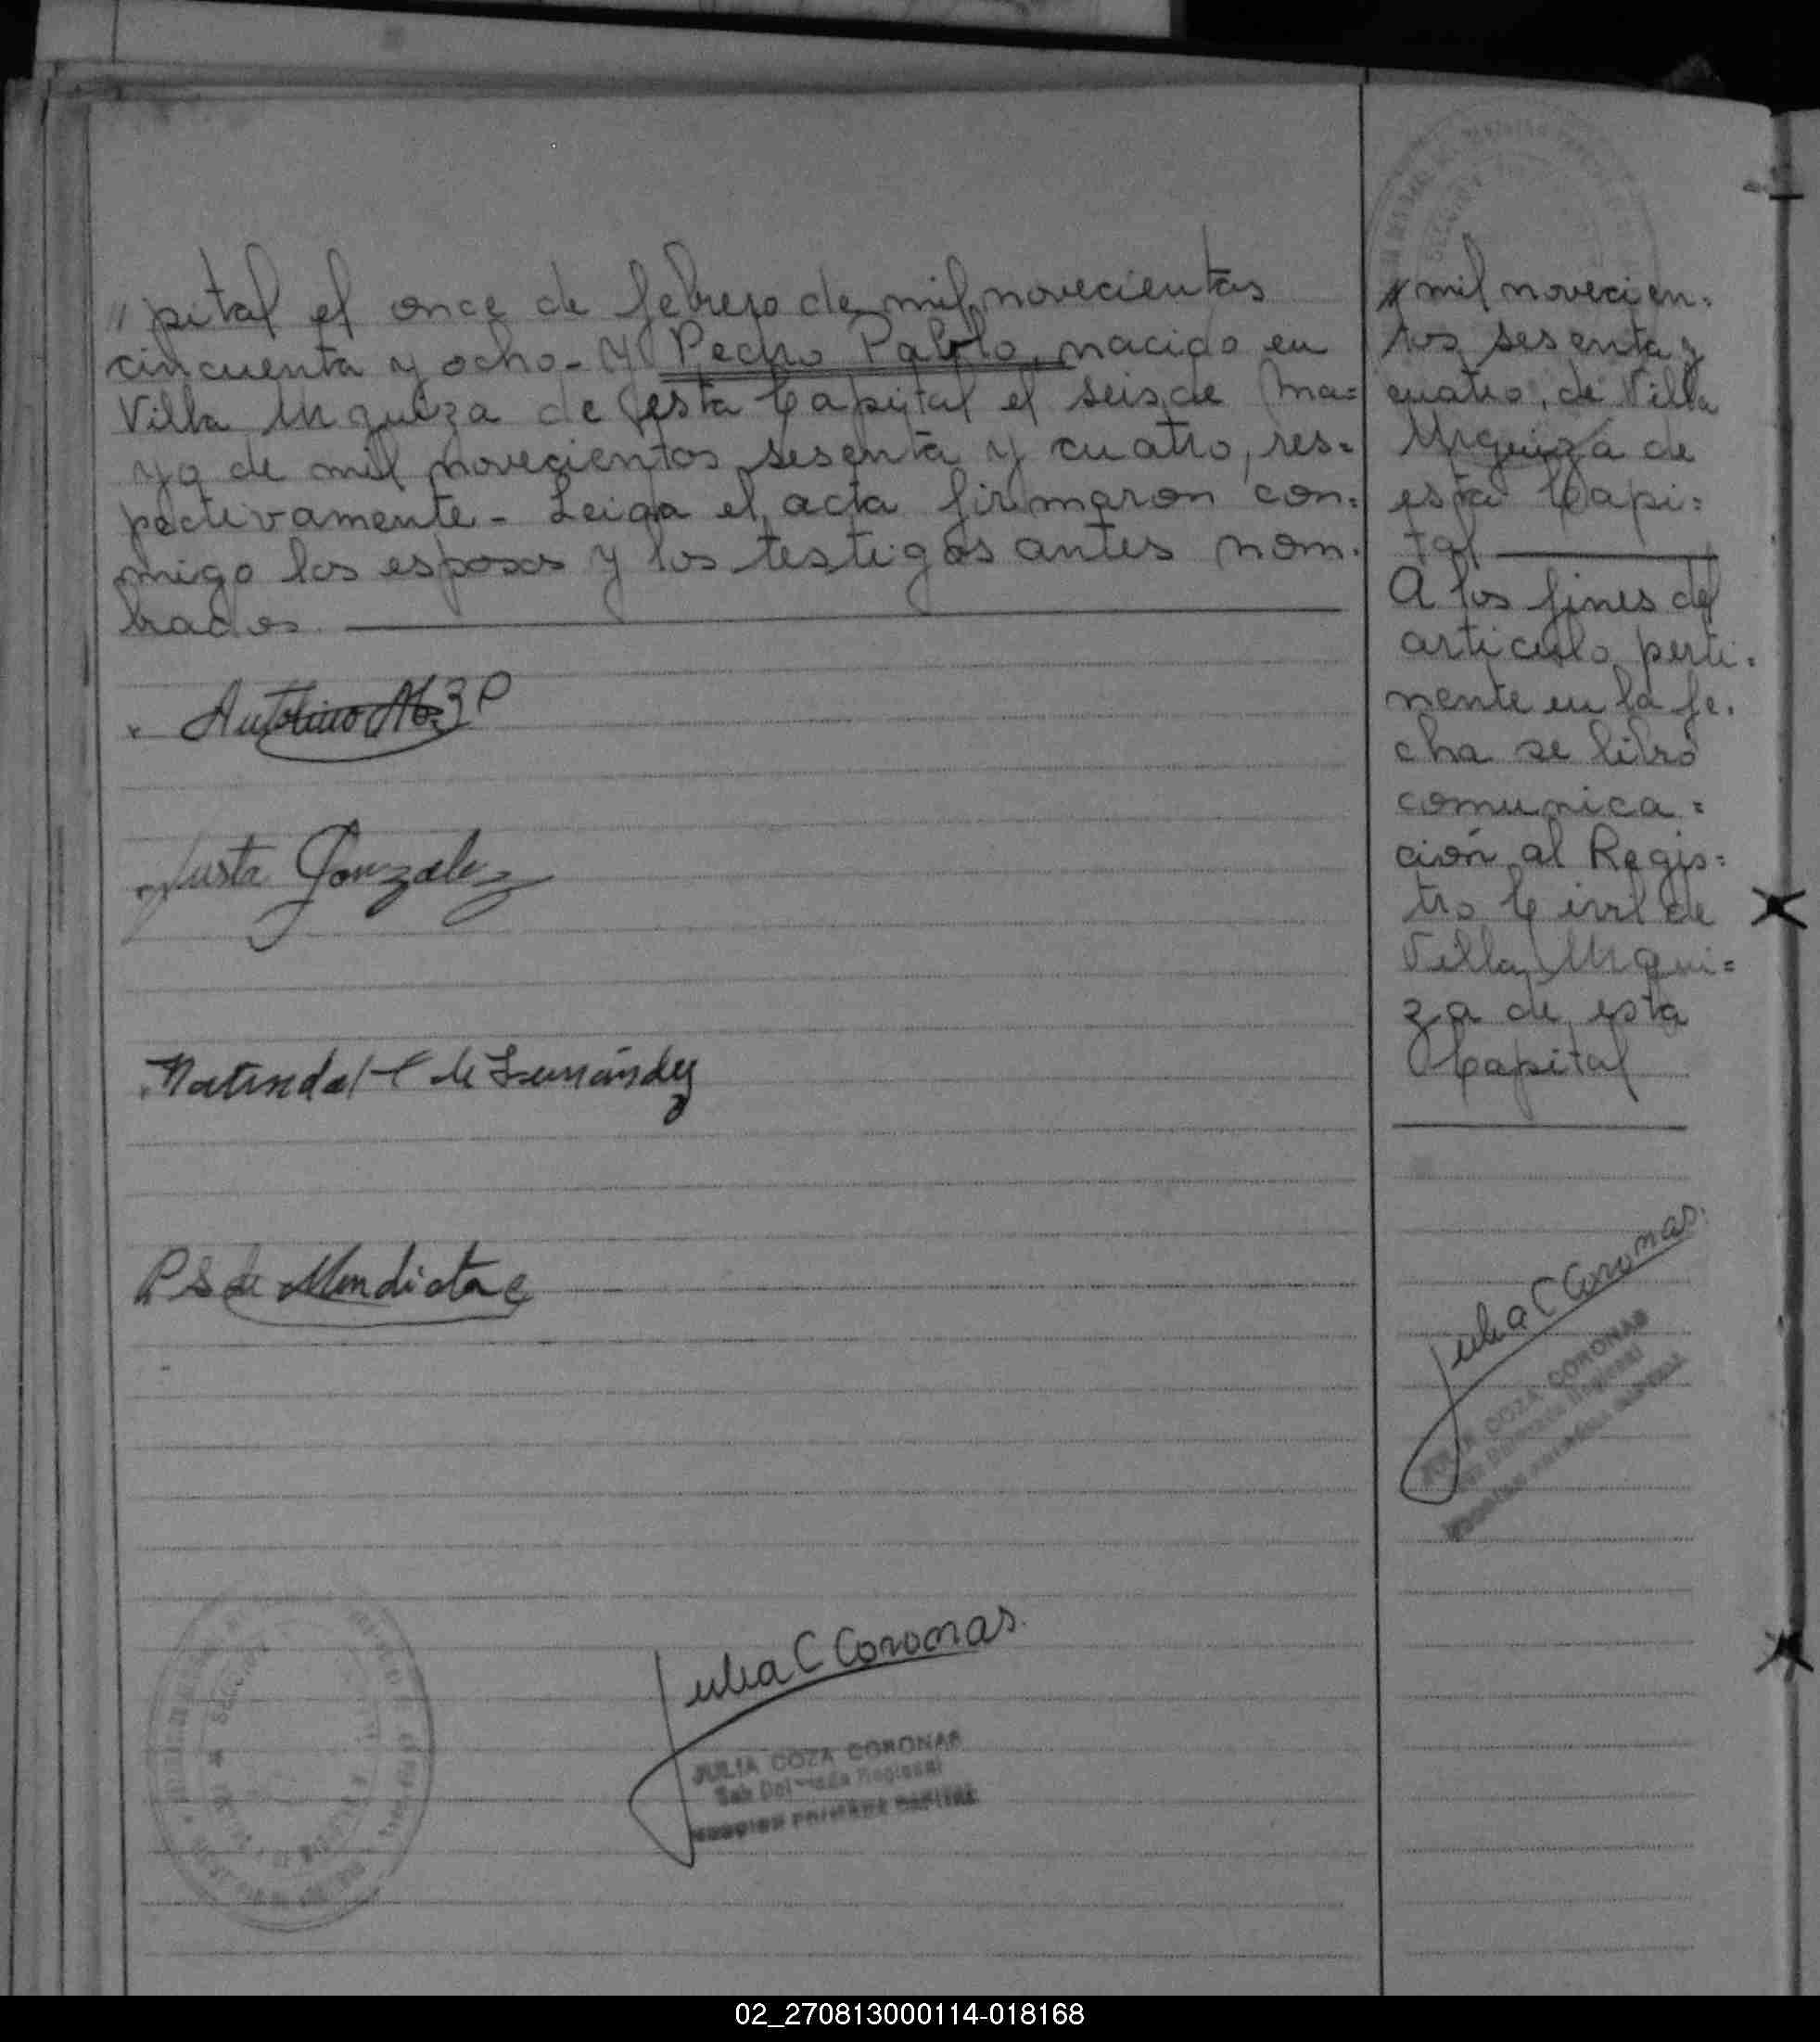 " pital el once de febrero de mil novecientos
cincuenta y ocho - Y Pedro Pablo, nacido en
Villa Urquiza de esta Capital el seis de Ma=
yo de mil novecientos sesenta y cuatro, res=
pectivamente - Leida el acta firmaron con=
migo los esposos y los testigos antes nom.
brados.
Justa Gonzalez
de Fernández
P S de Mendieta
Julia C Coronas.
JULIA COZA CORONAS
Sub Delegada Regional
" mil novecien.
tos sesenta y
cuatro, de Villa
Urquiza de
esta Capi=
tal
A los fines del
articulo perti.
nente en la fe.
cha se libró
comunica=
ción al Regis=
tro Civil de
Villa Urqui=
za de esta
Capital
Julia C Coronas.
JULIA COZA CORONAS
Sub Delegada Regional
02_270813000114-018168